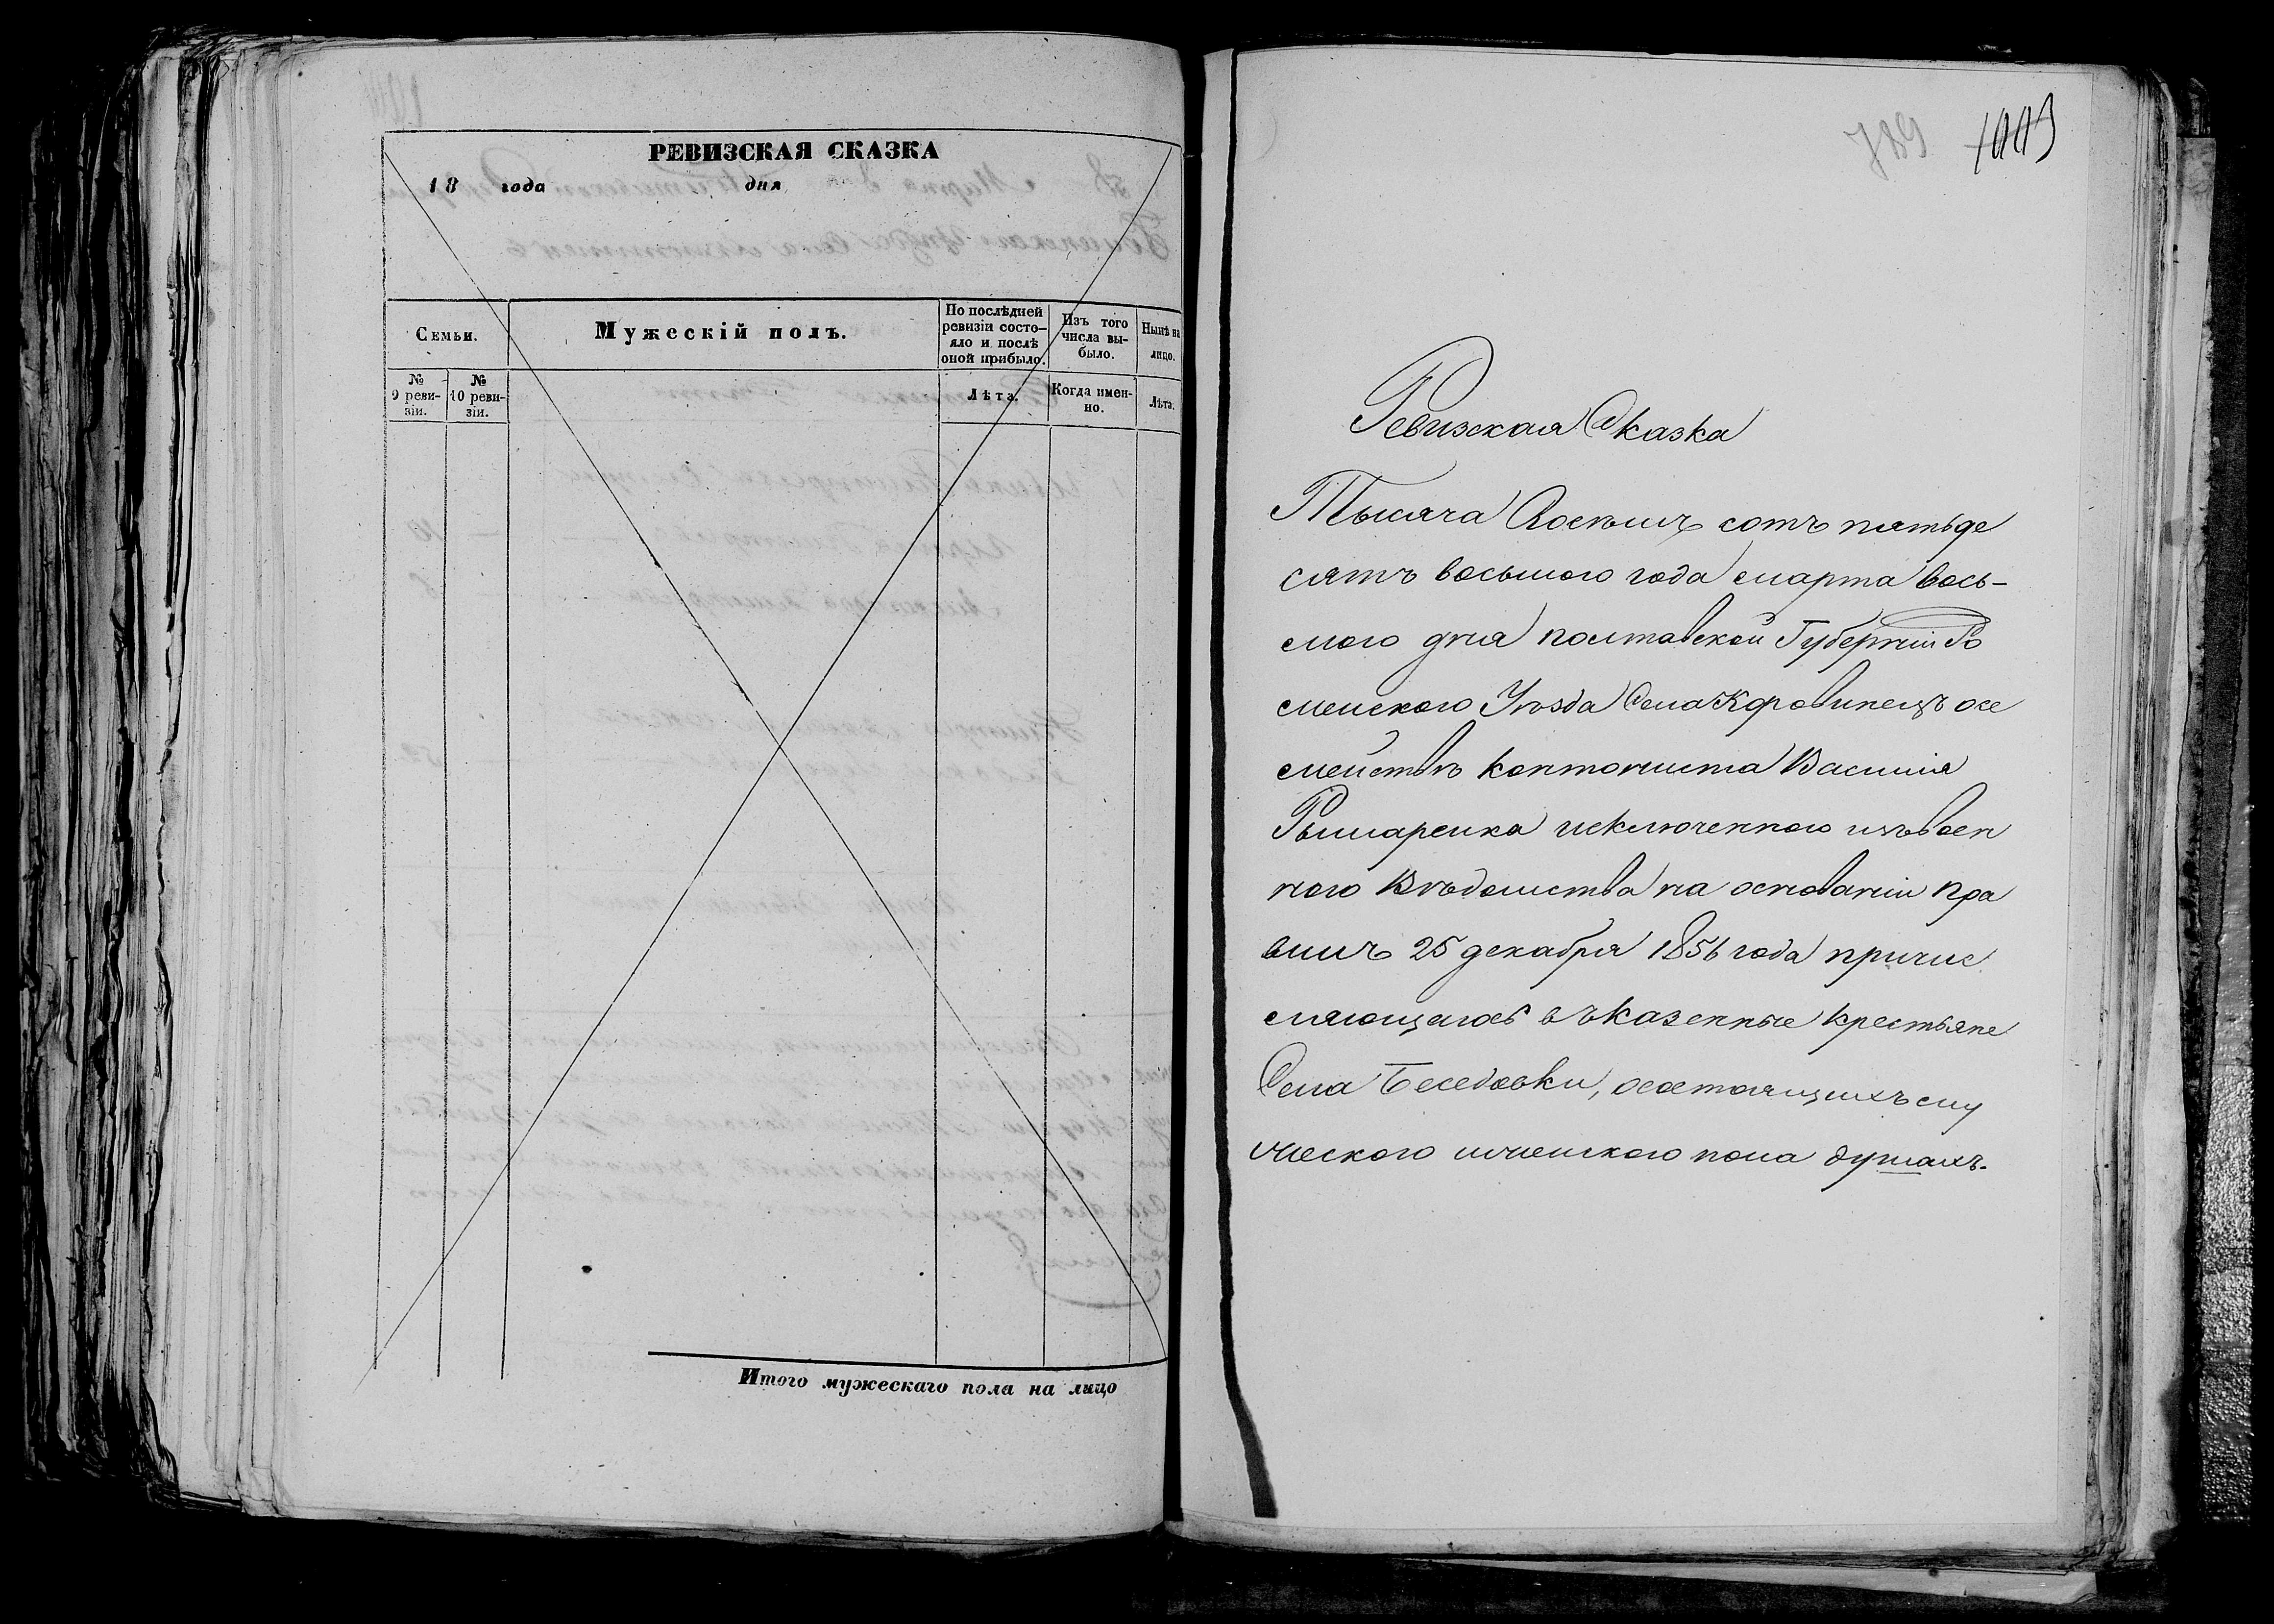 РЕВИЗСКАЯ СКАЗКА
18 года дня
Семьи.
Мужескій полъ.
По послѣдней ревизіи состо-
яло и послѣ
оной прибыло.
Изъ того
числа вы-
было.
Нынѣ на
лицо.
№
9 реви-
зіи.
№
10 реви-
зіи.
Лѣта.
Когда имен-
но.
Лѣта.
Итого мужескаго пола на лицо
789 1003
Ревизская Сказка
Тысяча Восемь сотъ пятьде
сятъ восьмого года марта вось-
мого дня полтавской Губерніи Ро
менского Уѣзда Села Коровинецъ осе
мействѣ кантониста Василія
Рымаренка исключенного изъвоен
ного Вѣдомства на основаніи пра
вилъ 25 декабря 1856 года причис
ляющагось въказенные крестьяне
Села Беседовки, осостоящихъ му
жеского иженского пола душахъ.